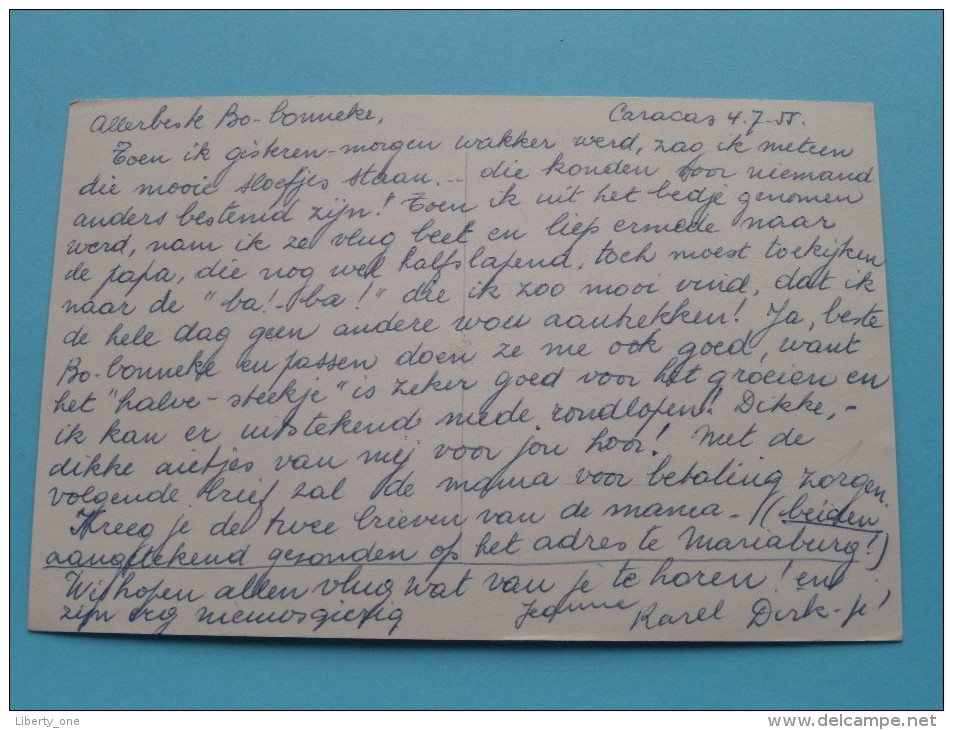 Allerbeste Bo-bonneke, Caracas 4.7-55.
Toen ik gisteren-morgen wakker werd, zag ik meteen
die mooie sloefjes staan... die konden voor niemand
anders bestemd zijn! Toen ik uit het bedje genomen
werd, nam ik ze vlug beet en liep ermede naar
de papa, die nog wel half slapend, toch moest toekijken
naar de "ba!-ba!" die ik zoo mooi vind, dat ik
de hele dag geen andere wou aantrekken! Ja, beste
Bo-bonneke en passen doen ze me ook goed, want
het "halve-steekje" is zeker goed voor het groeien en
ik kan er uitstekend mede rondlopen! Dikke,-
dikke aietjes van mij voor jou hoor! Met de
volgende brief zal de mama voor betaling zorgen.
Kreeg je de twee brieven van de mama - (beiden
aangetekend gezonden op het adres te Mariaburg!)
Wij hopen allen vlug wat van je te horen! en
zijn erg nieuwsgierig Jeanne Karel Dirk-je!
Liberty_one
www.delcampe.net